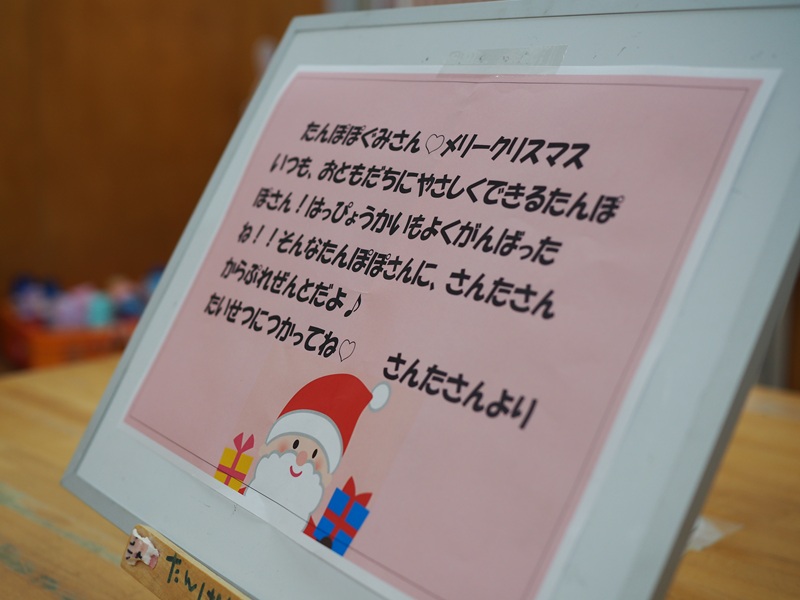 たんぽぽぐみさん♡メリークリスマス
いつも、おともだちにやさしくできるたんぽ
ぽさん！はっぴょうかいもよくがんばった
ね！！そんなたんぽぽさんに、さんたさん
からぷれぜんとだよ♪
たいせつにつかってね♡
さんたさんより